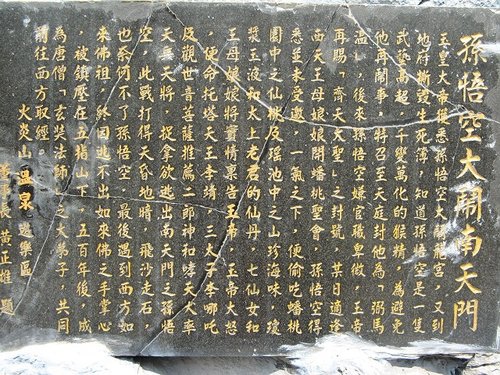 孫悟空大鬧南天門
玉皇大帝獲悉孫悟空大鬧龍宮，又到
地府撕毀生死簿，知道孫悟空是一隻
武藝高超，千變萬化的猴精，為避免
他再鬧事，特召至天庭封他為「弼馬
溫」，後來孫悟空嫌官職卑微，玉帝
再賜「齊天大聖」之封號。某日適逢
西天王母娘娘開蟠桃聖會，孫悟空得
悉並未受邀，一氣之下，便偷吃蟠桃
園中之仙桃及瑤池中之山珍海味，瓊
漿玉液和太上老君的仙丹。七仙女和
王母娘娘將實情稟告玉帝，玉帝大怒
，便命托塔天王李靖，三太子李哪吒
及觀世音菩薩推薦二郎神和哮天犬率
天兵天將，捉拿欲逃出南天門之孫悟
空，此戰打得天昏地暗，飛沙走石，
也奈何不了孫悟空，最後遇到西方如
來佛祖，終因逃不出如來佛之手掌心
，被鎮壓在五指山下，五百年後，成
為唐僧「玄奘法師」之大弟子，共同
前往西方取經。
火炎山溫泉遊樂區
董事長 黃正雄 題